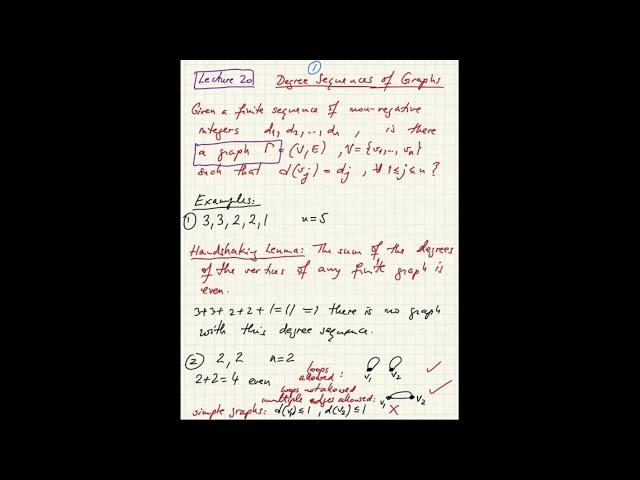 ①
Lecture 20 Degree Sequences of Graphs
Given a finite sequence of non-negative
integers d₁, d₂, ..., dₙ , is there
a graph Γ = (V, E) , V = {v₁, ..., vₙ}
such that d(vⱼ) = dⱼ , ∀ 1 ≤ j ≤ n ?
Examples:
① 3, 3, 2, 2, 1 n = 5
Handshaking Lemma: The sum of the degrees
of the vertices of any finite graph is
even.
3+3+2+2+1=11 ⇒ there is no graph
with this degree sequence.
② 2, 2 n=2
2+2=4 even
loops
allowed: v₁ v₂ ✓
loops not allowed
multiple edges allowed: v₁ v₂ ✓
simple graphs: d(v₁) ≤ 1 , d(v₂) ≤ 1 ✗